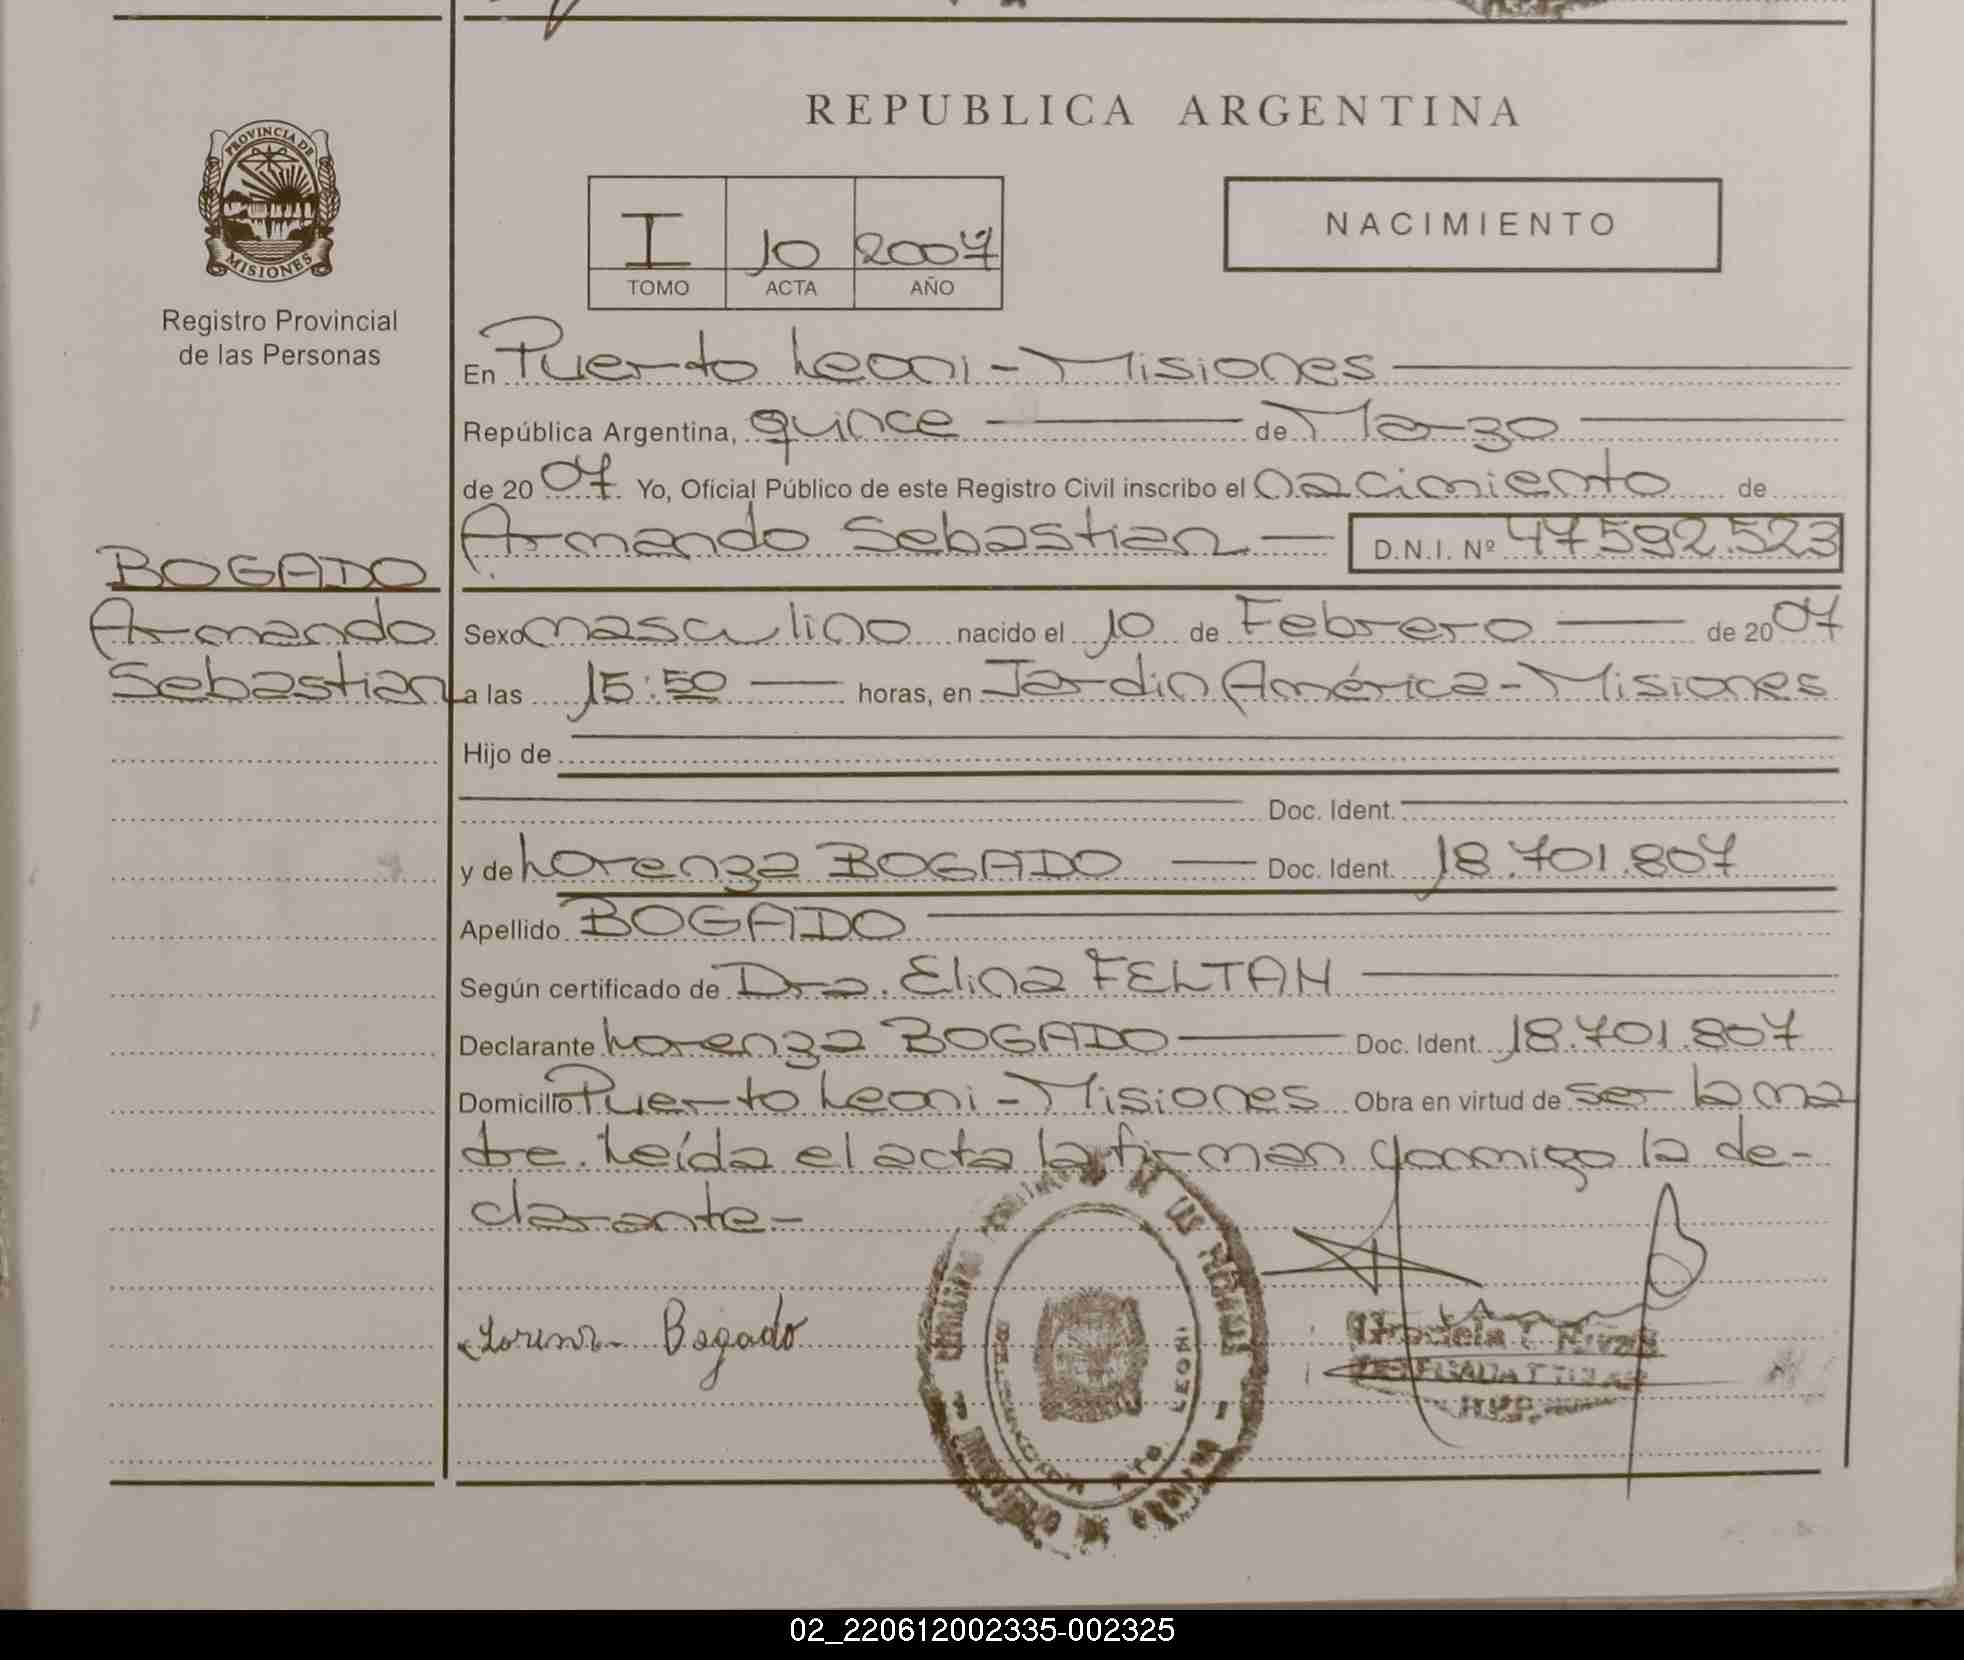 REPUBLICA ARGENTINA
PROVINCIA DE
MISIONES
Registro Provincial
de las Personas
I 10 2007
TOMO ACTA AÑO
NACIMIENTO
En Puerto Leoni - Misiones
República Argentina, quince de Marzo
de 20 07 Yo, Oficial Público de este Registro Civil inscribo el nacimiento de
Armando Sebastian D.N.I. Nº 47592.523
BOGADO
Armando
Sebastian
Sexo masculino nacido el 10 de Febrero de 20 07
a las 15:50 horas, en Jardin América - Misiones
Hijo de
Doc. Ident.
y de Lorenza BOGADO Doc. Ident. 18.701.807
Apellido BOGADO
Según certificado de Dra. Elina FELTAN
Declarante Lorenza BOGADO Doc. Ident. 18.701.807
Domicilio Puerto Leoni - Misiones Obra en virtud de ser la ma
dre. Leída el acta la firman conmigo la de-
clarante -
Bogado
LEONI
Pto.
02_220612002335-002325